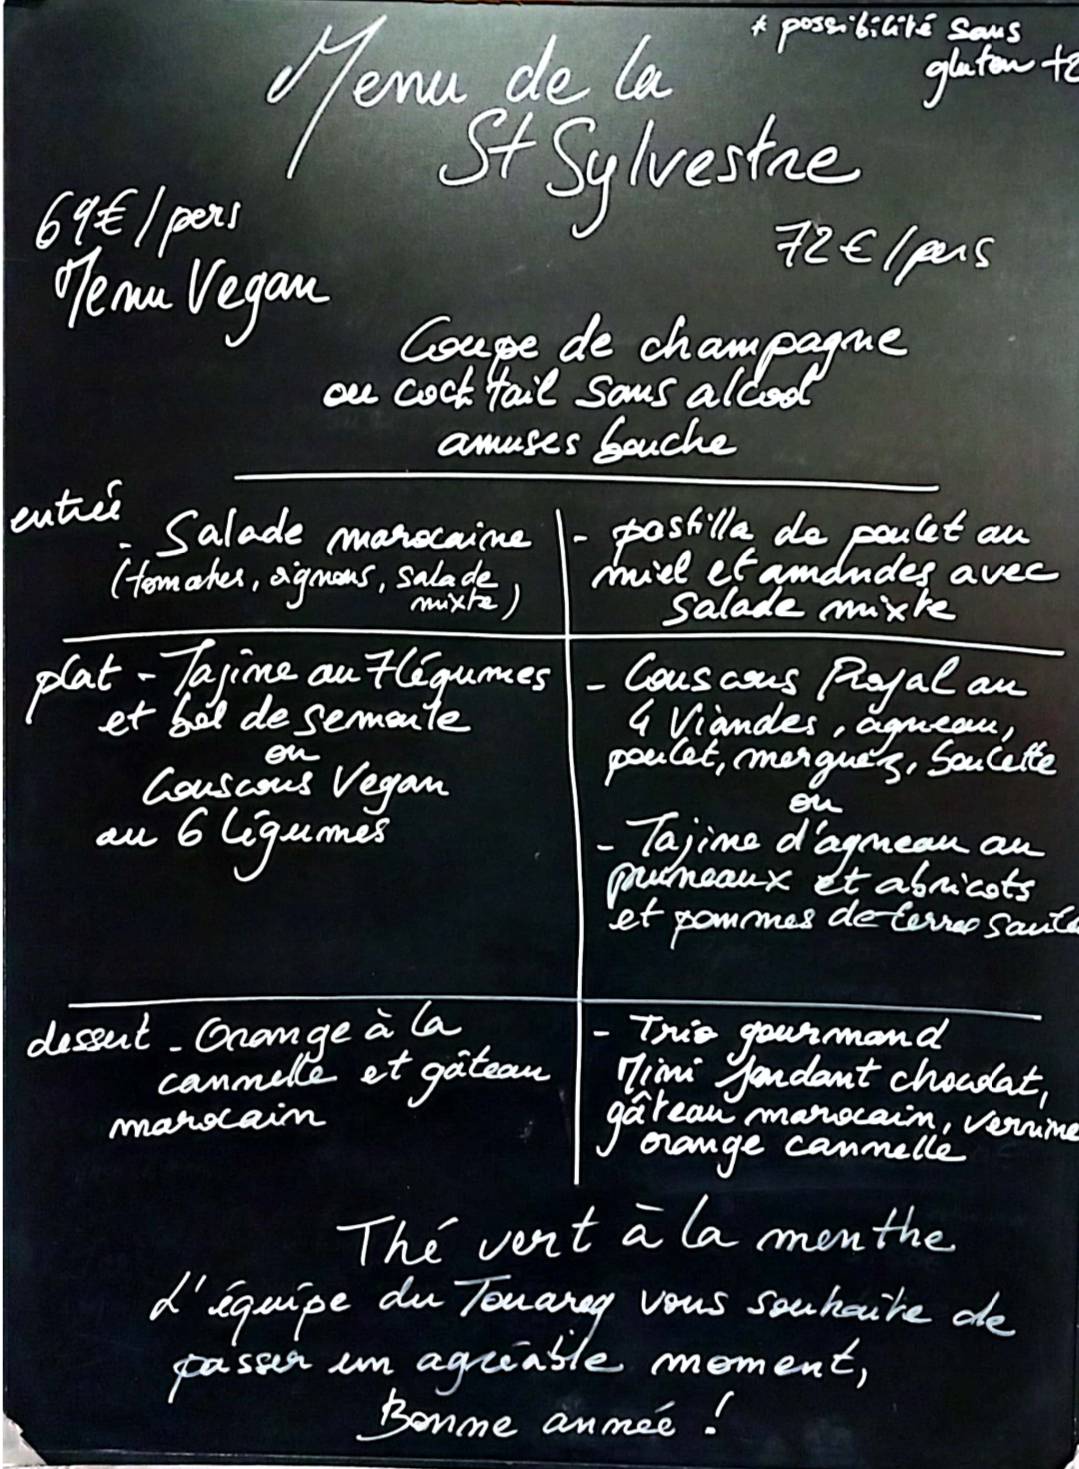 * possibilité sans
gluten
Menu de la
St Sylvestre
69€/pers
Menu Vegan
72€/pers
Coupe de champagne
ou cocktail sans alcool
amuses bouche
entrée
- Salade marocaine
(tomates, oignons, salade
mixte)
- pastilla de poulet au
miel et amandes avec
salade mixte
plat - Tajine au 7 légumes
et bol de semoule
ou
Couscous Vegan
au 6 légumes
- Couscous Royal au
4 Viandes, agneau,
poulet, merguez, boulette
ou
- Tajine d'agneau au
pruneaux et abricots
et pommes de terres
dessert - Orange à la
cannelle et gâteau
marocain
- Trio gourmand
Mini fondant chocolat,
gâteau marocain, verrine
orange cannelle
Thé vert à la menthe
L'équipe du Touareg vous souhaite de
passer un agréable moment,
Bonne année !